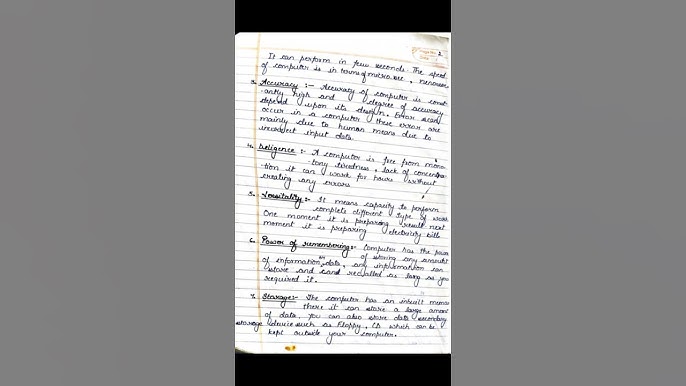 Page No. 2
Date
It can perform in few seconds. The speed
of computer is in terms of micro sec,
3. Accuracy :- Accuracy of computer is const
antly high and degree of accuracy
depend upon its design. Error
occur in a computer these error are
mainly due to human means due to
incorrect input data.
4. Deligence :- A computer is free from mono
tony tiredness, lack of concentra
tion it can work for hours without
creating any errors
5. Versitality :- It means capacity to perform
complete different type of work
One moment it is preparing result next
moment it is preparing electricity bills
6. Power of remembering :- Computer has the power
of storing any amount
of information, or data, any information can
store and recalled as long as you
required it.
7. Storage :- The computer has an inbuilt memo
there it can store a large amont
of data, you can also store data secondary
storage device such as Floppy, CD which can be
kept outside your computer.